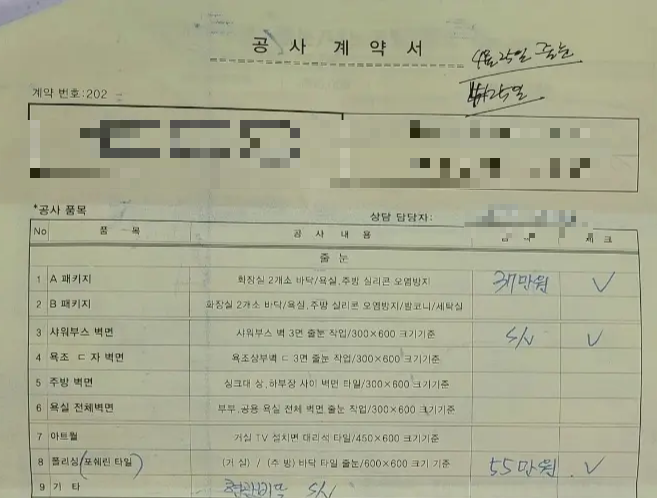 공 사 계 약 서
4월 25일 줄눈
25일
계약 번호:202
*공사 품목
상담 담당자:
No 품 목 공 사 내 용 체 크
줄 눈
1 A 패키지 화장실 2개소 바닥/욕실,주방 실리콘 오염방지 37만원 ✓
2 B 패키지 화장실 2개소 바닥/욕실,주방 실리콘 오염방지/발코니/세탁실
3 샤워부스 벽면 샤워부스 벽 3면 줄눈 작업/300×600 크기기준 S/V ✓
4 욕조 ㄷ 자 벽면 욕조상부벽 ㄷ 3면 줄눈 작업/300×600 크기기준
5 주방 벽면 싱크대 상,하부장 사이 벽면 타일/300×600 크기기준
6 욕실 전체벽면 부부,공용 욕실 전체 벽면 줄눈 작업/300×600 크기기준
7 아트월 거실 TV 설치면 대리석 타일/450×600 크기기준
8 폴리싱(포쉐린 타일) (거 실) / (주 방) 바닥 타일 줄눈/600×600 크기 기준 55만원 ✓
9 기 타 현관바닥 S/V